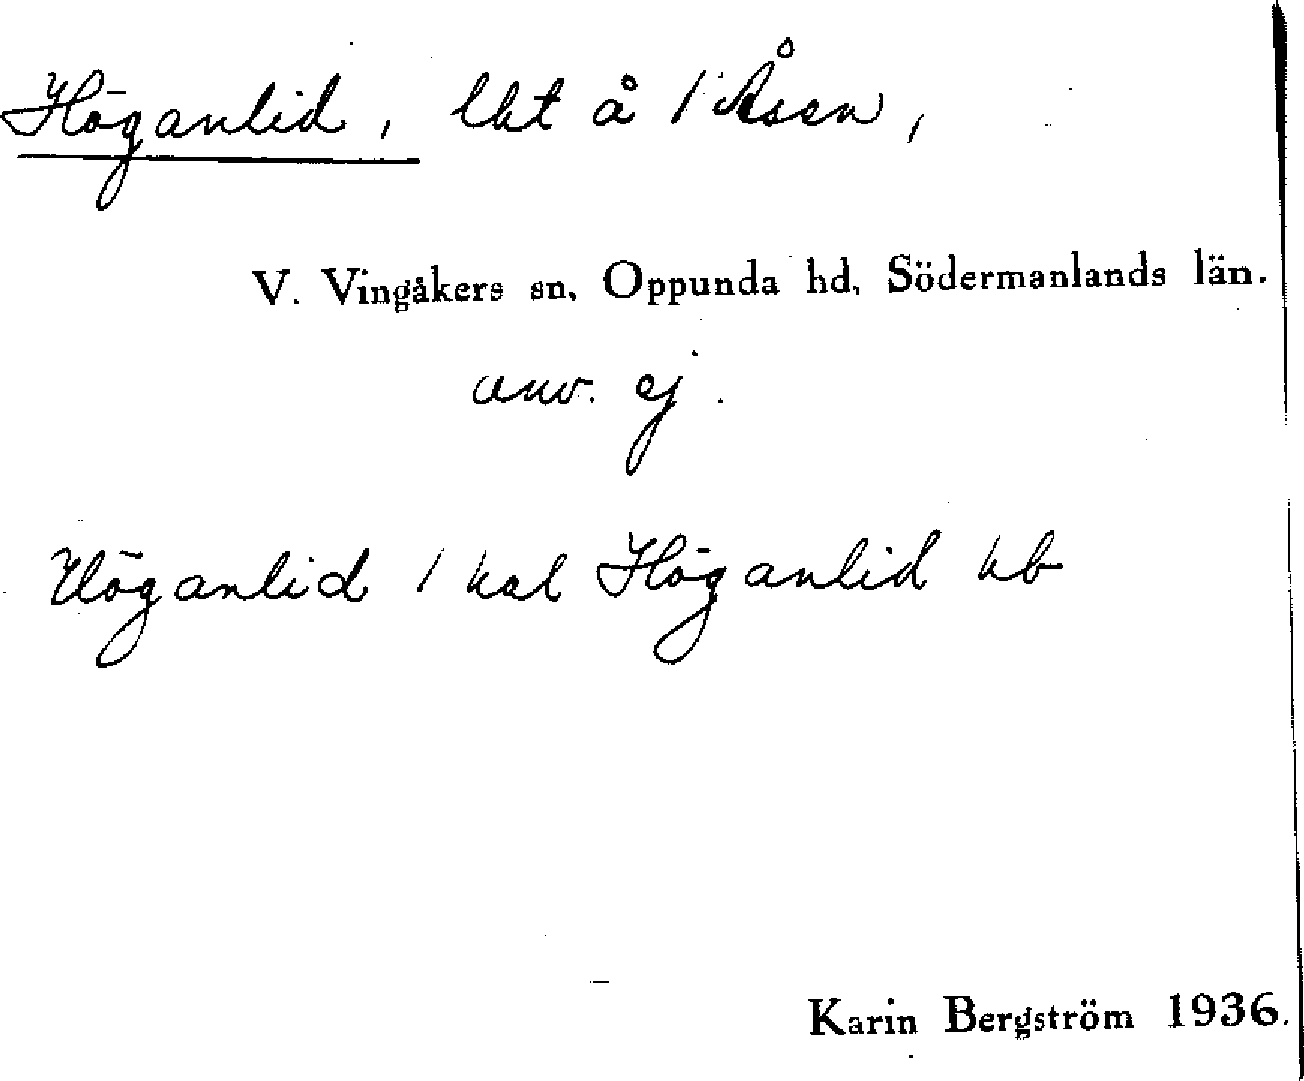 Höganlid, lht å 1 Åsen,
V. Vingåkers sn, Oppunda hd, Södermanlands län.
anv. ej.
Höganlid 1 kal Höganlid kb
Karin Bergström 1936.